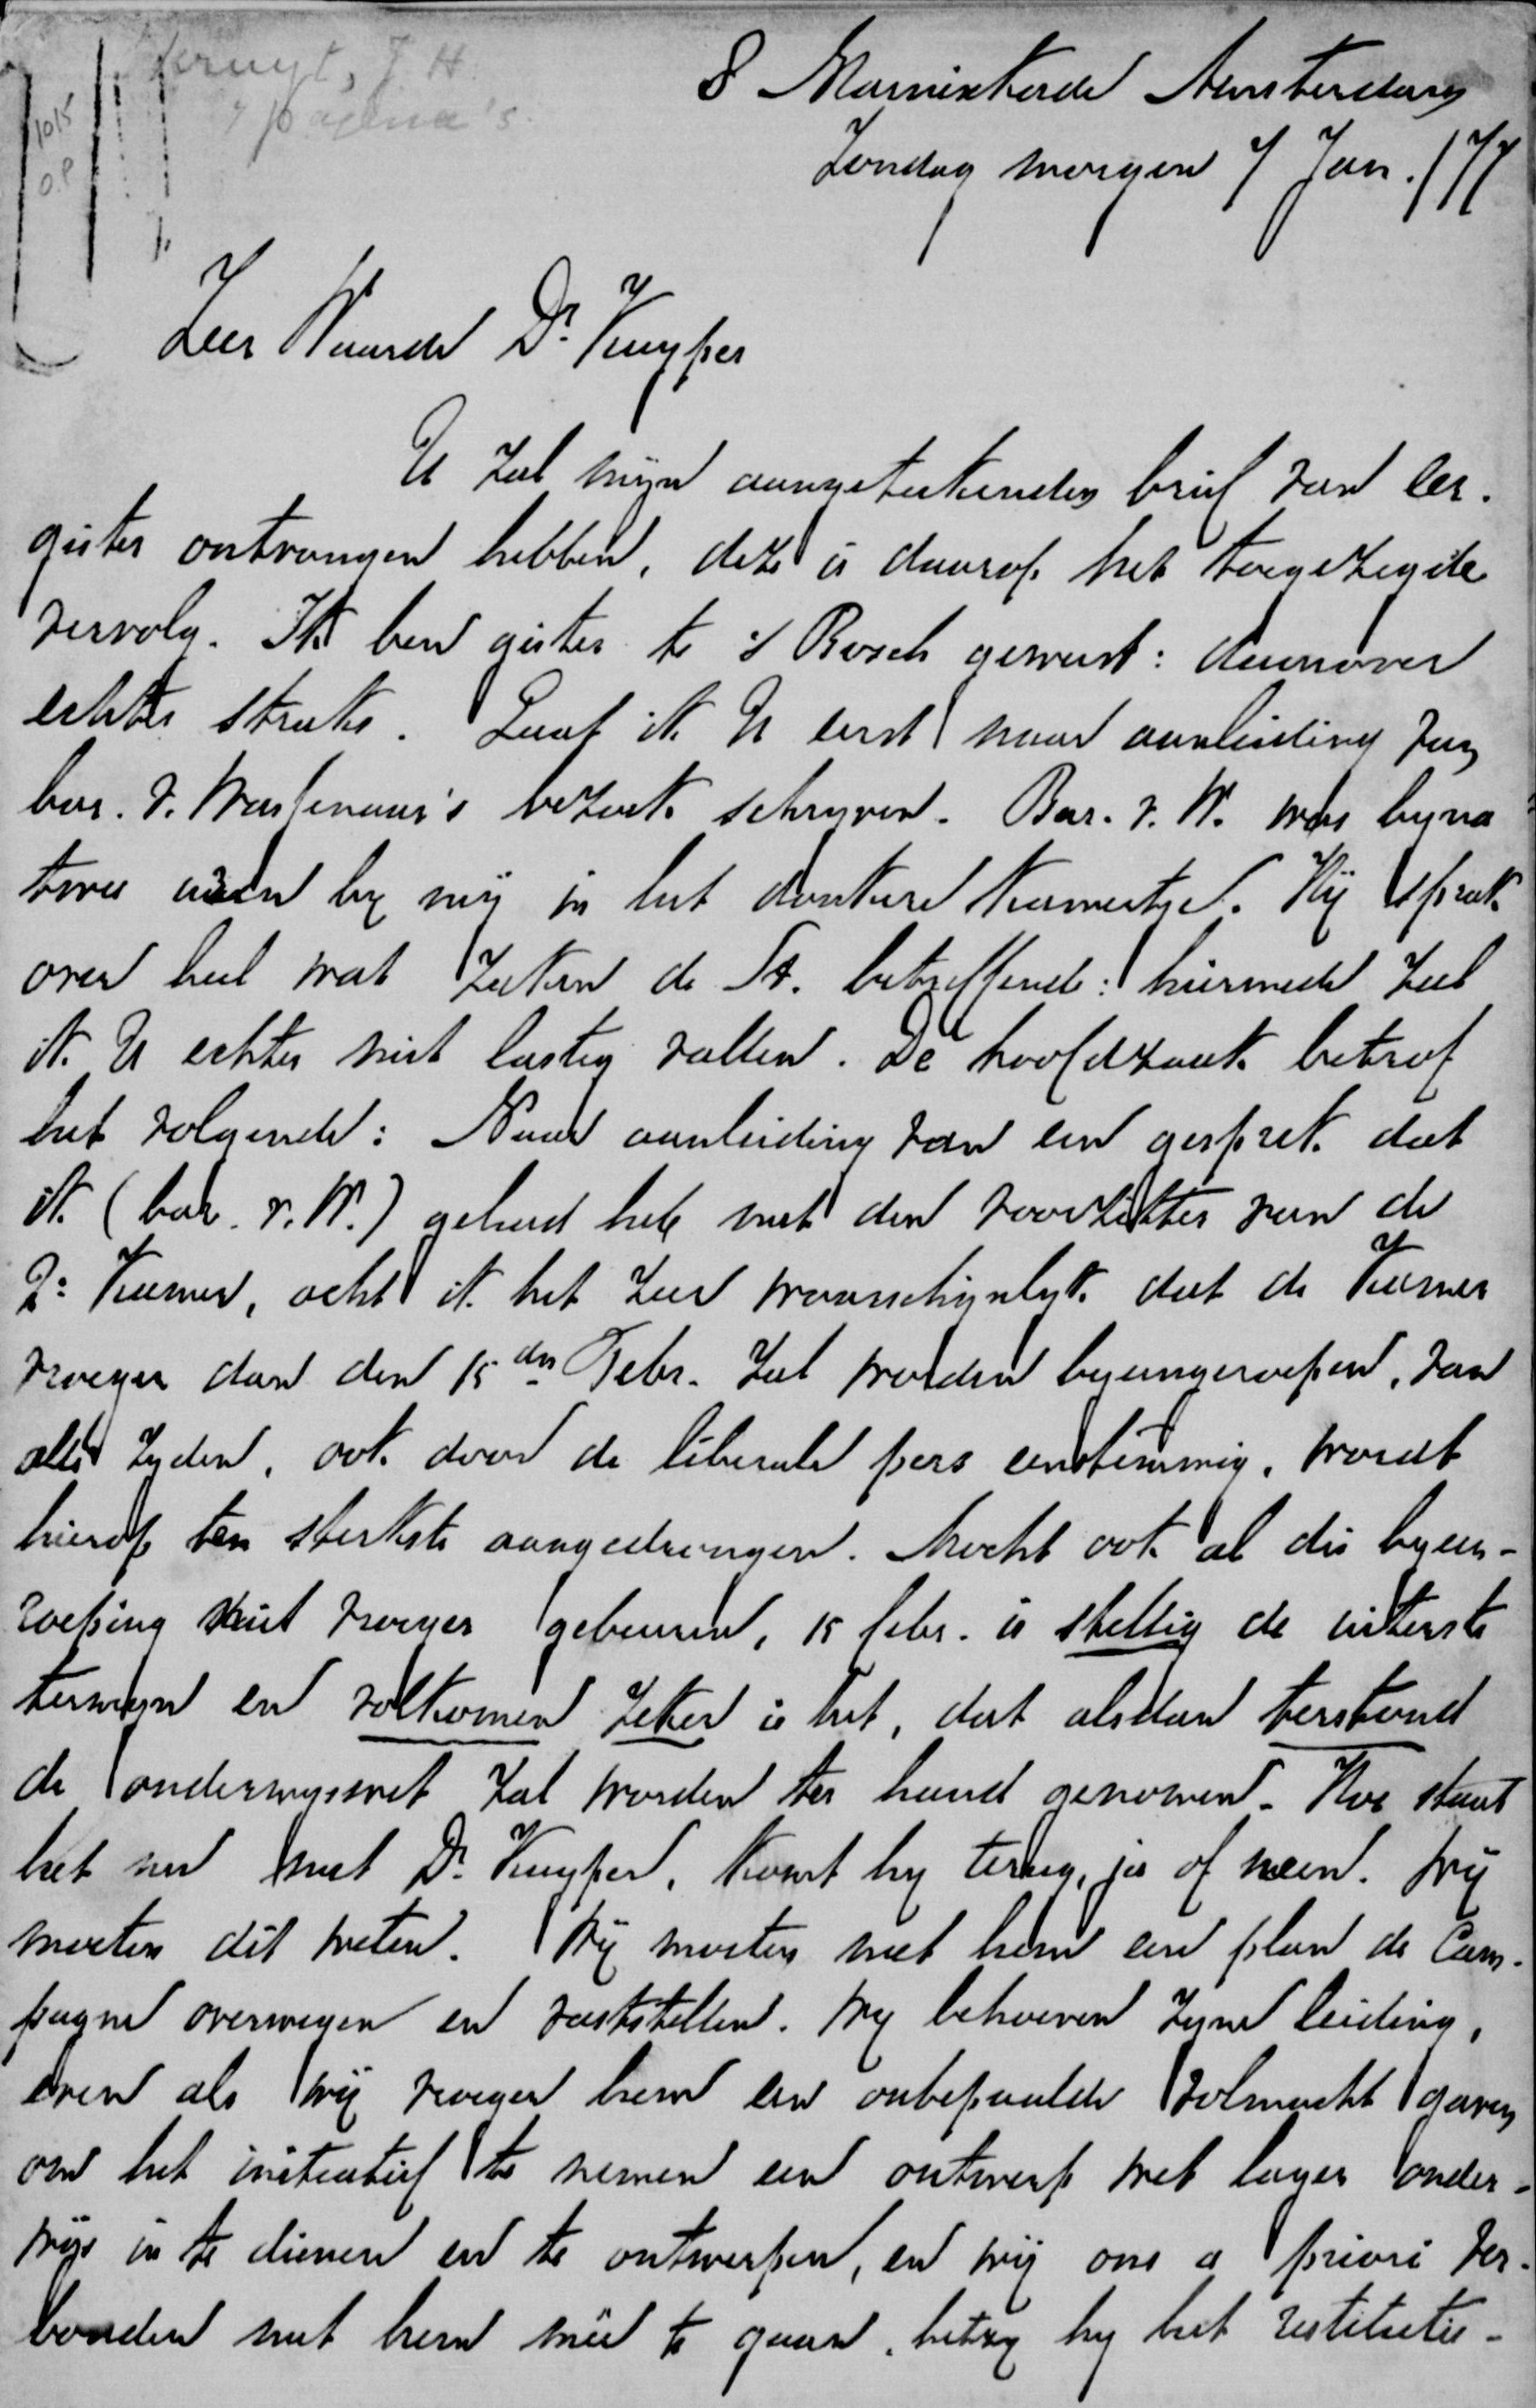 Kruyt, J H
7 pagina's
1015
O.P
8 Marnixkade Amsterdam
Zondag morgen 7 Jan. /77
Zeer Waarde Dr. Kuyper
U zal mijn aangeteekenden brief van eer-
gister ontvangen hebben, deze is daarop het toegezegde
vervolg. Ik ben gister te 's Bosch geweest: daarover
echter straks. Laat ik U eerst naar aanleiding van
bar. v. Wassenaer's bezoek schryven. Bar. v. W. was byna
twee uren by mij in het donkere kamertje. Hij sprak
over heel wat zaken de St. betreffende: hiermede zal
ik U echter niet lastig vallen. De hoofdzaak betrof
het volgende: Naar aanleiding van een gesprek dat
ik (bar. v. W.) gehad heb met den voorzitter van de
2e Kamer, acht ik het zeer waarschynlyk dat de Kamer
vroeger dan den 15den Febr. zal worden byeengeroepen, van
alle zyden, ook door de liberale pers eenstemmig, wordt
hierop ten sterkste aangedrongen. Mocht ook al die byeen-
roeping niet vroeger gebeuren, 15 febr. is stellig de uiterste
termyn en volkomen zeker is het, dat alsdan terstond
de onderwyswet zal worden ter hand genomen. Hoe staat
het nu met Dr. Kuyper, komt hy terug, ja of neen. Wij
moeten dit weten. Wij moeten met hem een plan de Cam-
pagne overwegen en vaststellen. Wy behoeven zyne leiding,
even als wij vroeger hem een onbepaalde volmacht gaven
om het initiatief te nemen een ontwerp wet lager onder-
wijs in te dienen en te ontwerpen, en wij ons a priori ver-
bonden met hem meê te gaan, hetzy hy het restitutie-